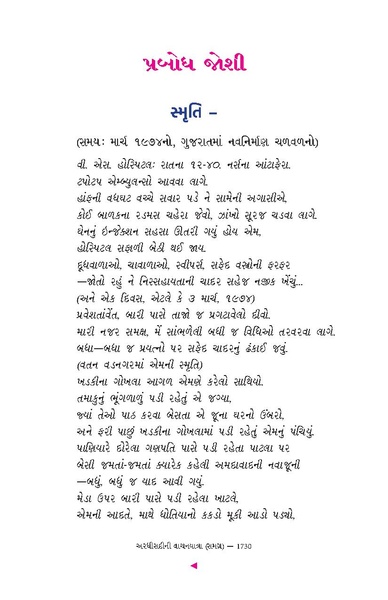 પ્રબોધ જોશી
સ્મૃતિ –
(સમયઃ માર્ચ ૧૯૭૪નો, ગુજરાતમાં નવનિર્માણ ચળવળનો)
વી. એસ. હોસ્પિટલઃ રાતના ૧૨-૪૦. નર્સના આંટાફેરા.
ટપોટપ એમ્બ્યુલન્સો આવવા લાગે.
હાંફની વધઘટ વચ્ચે સવાર પડે ને સામેની અગાસીએ,
કોઈ બાળકના રડમસ ચહેરા જેવો, ઝાંખો સૂરજ ચડવા લાગે.
ઘેનનું ઇન્જેક્શન સહસા ઊતરી ગયું હોય એમ,
હોસ્પિટલ સફાળી બેઠી થઈ જાય.
દૂધવાળાઓ, ચાવાળાઓ, સ્વીપર્સ, સફેદ વસ્ત્રોની ફરફર
—જોતો રહું ને નિસ્સહાયતાની ચાદર સહેજ નજીક ખેંચું...
(અને એક દિવસ, એટલે કે ૩ માર્ચ, ૧૯૭૪)
પ્રવેશતાંવેંત, બારી પાસે તાજો જ પ્રગટાવેલો દીવો.
મારી નજર સમક્ષ, મેં સાંભળેલી બધી જ વિધિઓ તરવરવા લાગે.
બધા—બધા જ પ્રયત્નો પર સફેદ ચાદરનું ઢંકાઈ જવું.
(વતન વડનગરમાં એમની સ્મૃતિ)
ખડકીના ગોખલા આગળ એમણે કરેલો સાથિયો.
તમાકુનું ભૂંગળાળું પડી રહેતું એ જગ્યા,
જ્યાં તેઓ પાઠ કરવા બેસતા એ જૂના ઘરનો ઉંબરો,
અને ફરી પાછું ખડકીના ગોખલામાં પડી રહેતું એમનું પંચિયું.
પાણિયારે દોરેલા ગણપતિ પાસે પડી રહેતા પાટલા પર
બેસી જમતાં-જમતાં ક્યારેક કહેલી અમદાવાદની નવાજૂની
—બધું, બધું જ યાદ આવી ગયું.
મેડા ઉપર બારી પાસે પડી રહેલા ખાટલે,
એમની આદતે, માથે ધોતિયાનો કકડો મૂકી આડો પડ્યો,
અરધીસદીની વાચનયાત્રા (સમગ્ર) — 1730